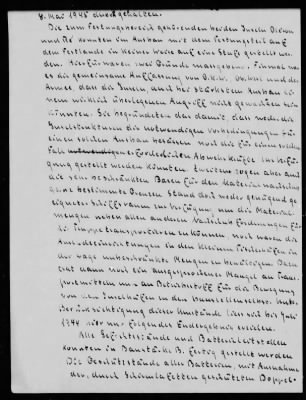 8. Mai 1945 durchgehalten.
Die zum Festungsbereich gehörenden beiden Inseln Oléron
und Ré konnten im Ausbau mit dem Festungsteil auf
dem Festlande in keiner Weise auf eine Stufe gestellt wer-
den. Hierfür waren zwei Gründe massgebend. Einmal war
es die gemeinsame Auffassung von O.K.W., Ob. West und der
Armee, dass die Inseln auch bei stärkstem Ausbau ei-
nem wirklich überlegenen Angriff nicht gewachsen sein
könnten. Sie begründeten das damit, dass weder die
Inselstrukturen die notwendigen Vorbedingungen für
einen solchen Ausbau besässen noch die für einen solchen
Fall erforderlichen Abwehrkräfte zur Verfü-
gung gestellt werden könnten. Zweitens zogen aber auch
die sehr beschränkten Basen für den Materialnachschub
ganz bestimmte Grenzen. Stand doch weder genügend ge-
eigneter Schiffsraum zur Verfügung, um die Material-
mengen neben allen anderen Nachschubforderungen für
die Truppe transportieren zu können, noch waren die
Ausladeeinrichtungen in den kleinen Inselhäfen in
der Lage unbeschränkte Mengen zu bewältigen. Dazu
trat dann noch ein ausgesprochener Mangel an Trans-
portmitteln und an Betriebsstoff für die Bewegung
von den Inselhäfen zu den Baustellen selbst. Unter
Berücksichtigung dieser Umstände liess sich bis Juli
1944 nur folgender Endergebnis erzielen.
Alle Gefechtsstände und Batterieleitstellen
konnten in Baustärke B. fertig gestellt werden
Die Geschützstände aller Batterien, mit Ausnahme
der, durch Schutzschilde geschützten Doppel-